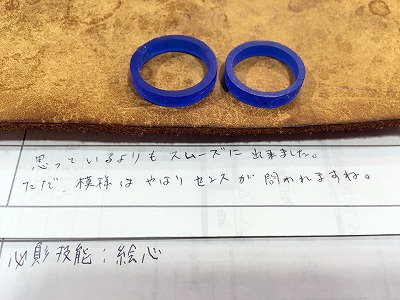 思っているよりもスムーズに出来ました。
ただ、模様はやはりセンスが問われますね。
必要技能：絵心